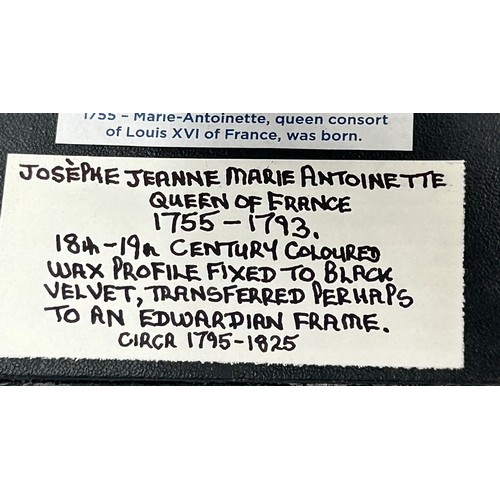 1755 – Marie-Antoinette, queen consort
of Louis XVI of France, was born.
JOSÈPHE JEANNE MARIE ANTOINETTE
QUEEN OF FRANCE
1755-1793.
18th-19th CENTURY COLOURED
WAX PROFILE FIXED TO BLACK
VELVET, TRANSFERRED PERHAPS
TO AN EDWARDIAN FRAME.
CIRCA 1795-1825